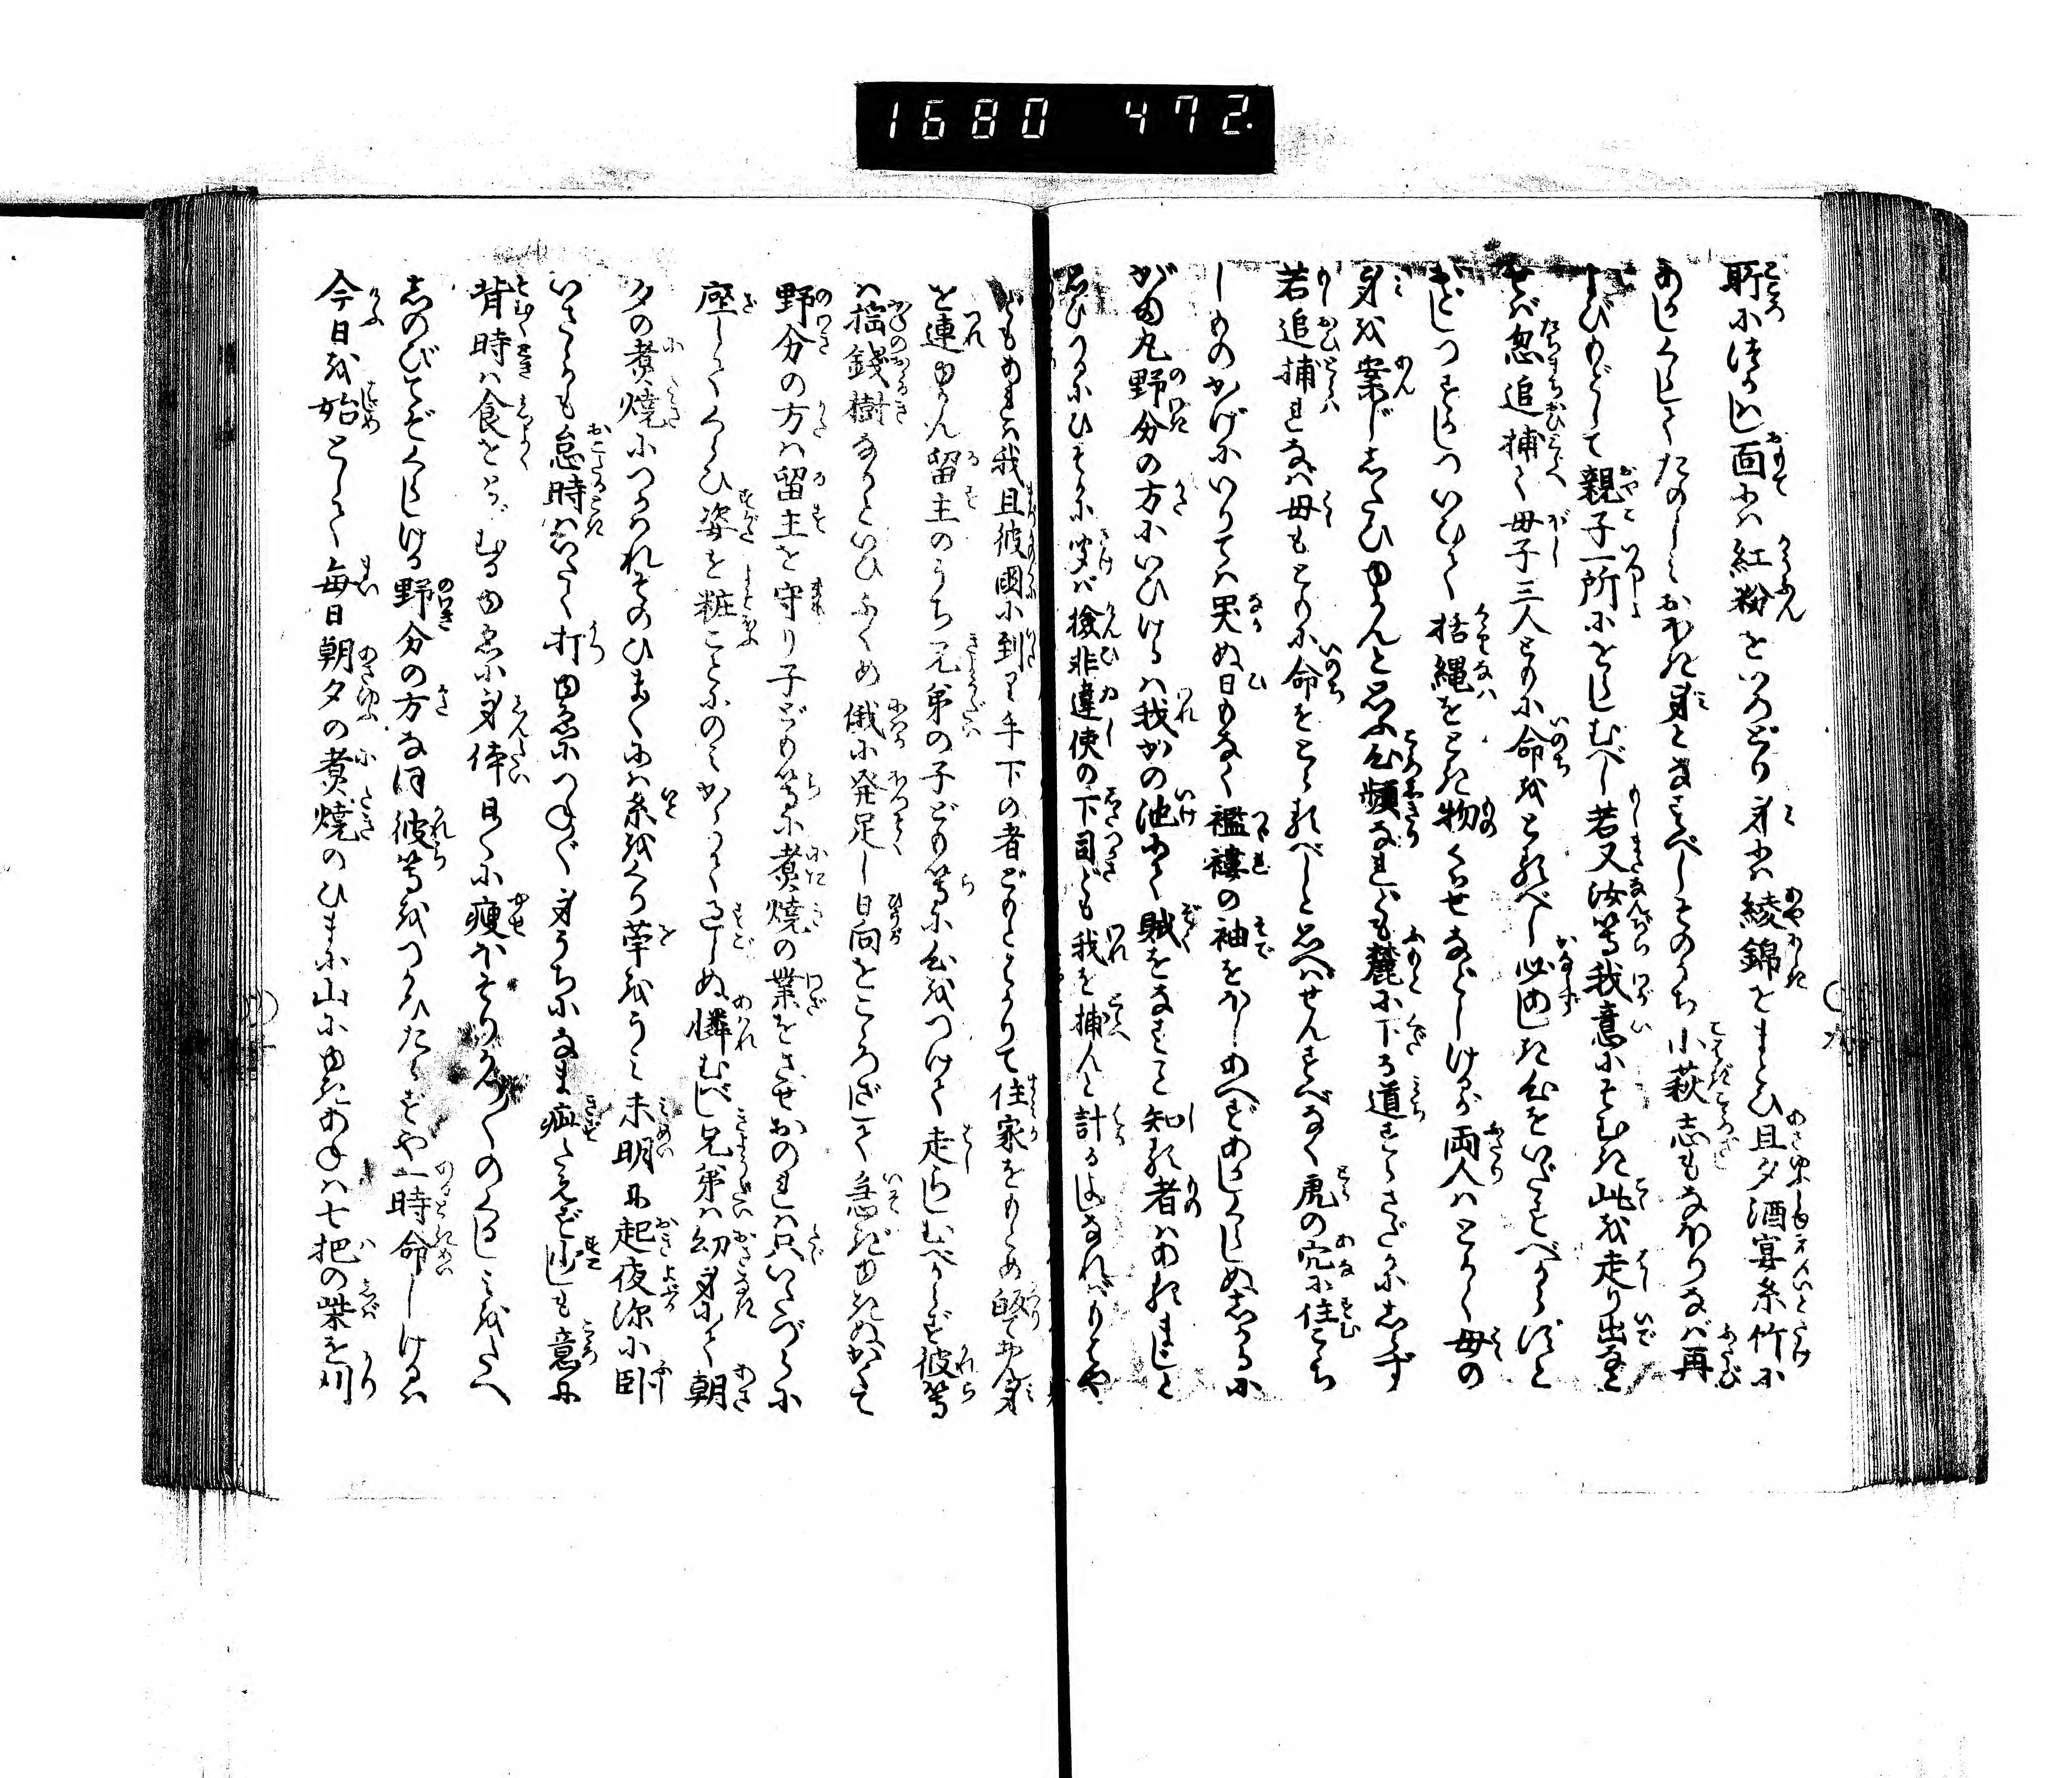 1680 472.
所に待かし面には紅粉をいろどり身には綾錦をまとひ且夕酒宴糸竹に
あかしくらしてたのしみおはき身となすべしそのうち小萩志もなほりなば再
よびもどして親子一所にをらしむべし若又汝等我意にそむき此を走り出なと
せば忽追捕て母子三人ともに命をとるべし必迯き心をいだすべからずと
おどしつすかしついひて括縄をとき物くはせなどしけるが両人はとかく母の
身を案じしたひゆかんと思ふ心頻なれども麓に下る道すらさだかにしらず
若追捕れなば母もともに命をとらるべしと思へばせんすべなく虎の穴に住こゝち
しものかげにいりては哭ぬ日もなく襤褸の袖をほしあへずあかしくらしぬしかるに
がま丸野分の方にいひけるは我かの池にて賊をなすこと知る者はあるまじと
思ひつるにひそかに聞ば検非違使の下司ども我を捕んと計るよしなればもはや
どもあれば我且彼国に到り手下の者どもとはかりて住家をもとめ皈てわ身
を連ゆかん留主のうち兄弟の子ども等に心をつけて走らしむべからず彼等
は揺銭樹なりといひふくめ俄に発足し日向をこゝろざして急ぎゆきぬかくて
野分の方は留主を守り子ども等に煮焼の業をさせおのれは只いたづらに
座してくらひ姿を粧ことにのみかゝりて過しぬ憐むべし兄弟は幼身にて朝
夕の煮焼につかはれそのひまには糸をくり苧をうみ未明に起夜深に臥
いさゝかも怠時はいたく打ゆゑにつねに身うちになま疵たえず少しも意に
背時は食をとゞむるゆゑに身体日々に痩おとろへ多くのくるしみをたへ
しのびてぞくらしける野分の方なほ彼等をつかひたらずや一時命しけるは
今日を始として毎日朝夕の煮焼のひまに山にゆきあねは七把の柴を刈